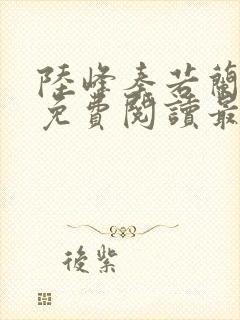 陸峰秦若蘭
免費閱讀最
後紫